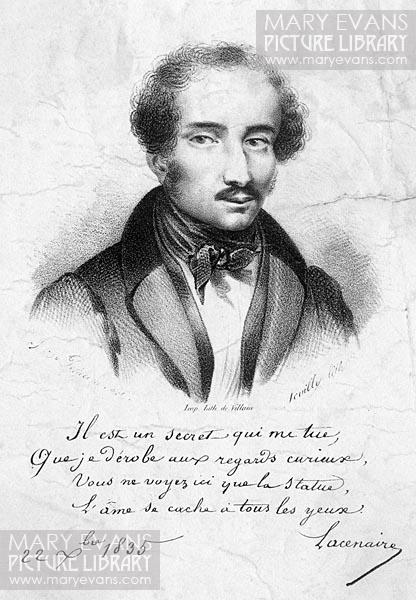 MARY EVANS
PICTURE LIBRARY
www.maryevans.com
Imp. Lith. de Villain
lith.
Il est un secret qui me tue,
Que je dérobe aux regards curieux,
Vous ne voyez ici que la statue,
L'âme se cache à tous les yeux.
Lacenaire
22 Xbre 1835
MARY EVANS
PICTURE LIBRARY
www.maryevans.com